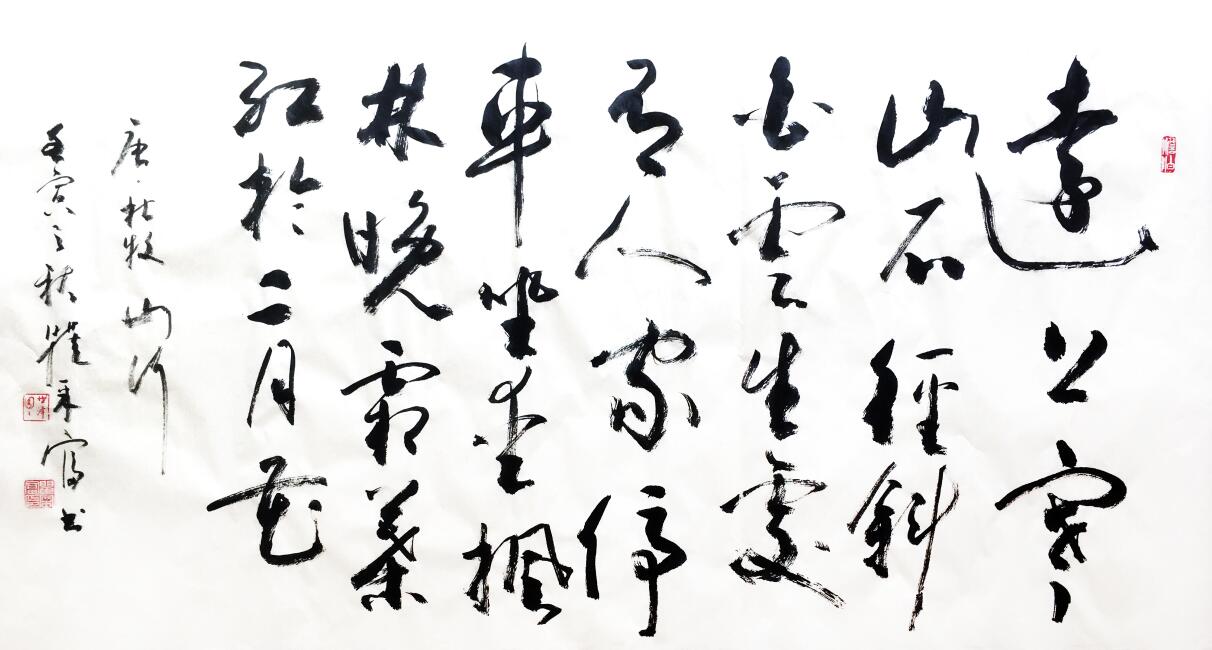 遠上寒
山石徑斜
白雲生處
有人家停
車坐愛楓
林晚霜葉
紅於二月花
唐杜牧山行
壬寅之秋 书